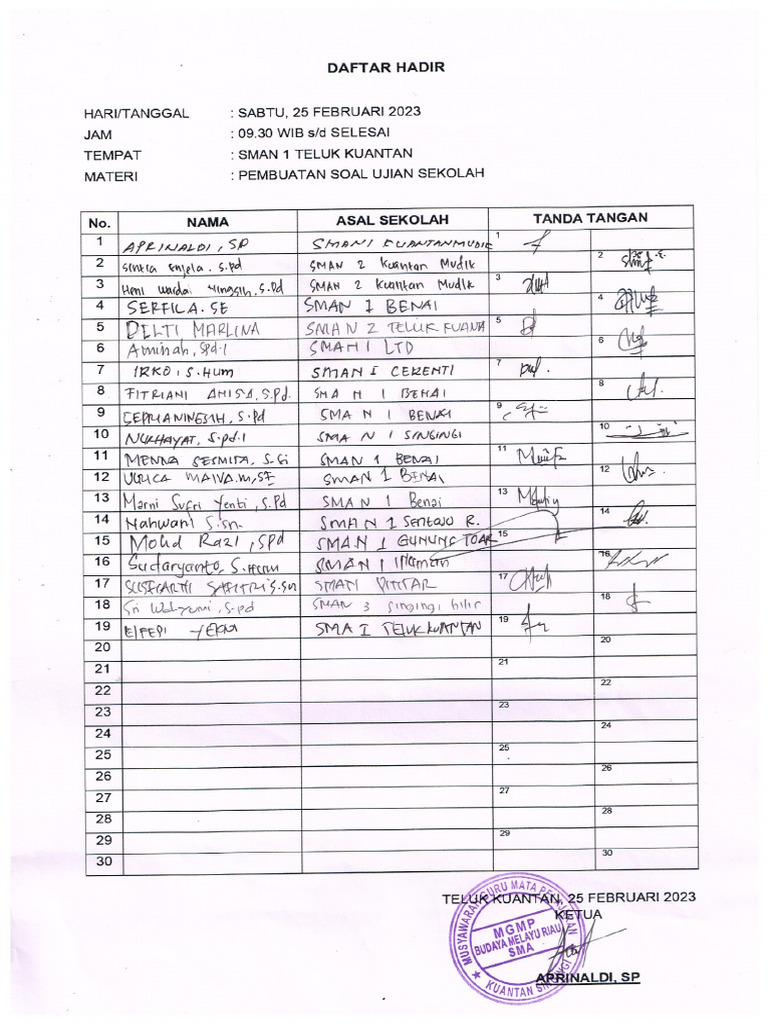 DAFTAR HADIR
HARI/TANGGAL : SABTU, 25 FEBRUARI 2023
JAM : 09.30 WIB s/d SELESAI
TEMPAT : SMAN 1 TELUK KUANTAN
MATERI : PEMBUATAN SOAL UJIAN SEKOLAH
No. NAMA ASAL SEKOLAH TANDA TANGAN
1 APRINALDI, SP SMAN 1 KUANTAN MUDIK 1
2 Sintia Enjela. S.pd SMAN 2 Kuantan Mudik 2
3 Heni Wardai Ningsih, S.Pd SMAN 2 Kuantan Mudik 3
4 SERFILA. SE SMAN 1 BENAI 4
5 DELTI MARLINA SMAN 2 TELUK KUANTA 5
6 Aminah, Spd.I SMAN 1 LTD 6
7 IRKO, S.HUM SMAN 1 CERENTI 7
8 FITRIANI ANISA, S.Pd. SMA N 1 BENAI 8
9 S.Pd SMA N 1 BENAI 9
10 NURHAYAT, S.pd.I SMA N 1 SINGINGI 10
11 MENNA SESMITA, S.Si SMAN 1 BENAI 11
12 ULRICA MAIVA.M, SE SMAN 1 BENAI 12
13 Marni Sufri Yenti, S.Pd SMAN 1 Benai 13
14 Nahwani S.Sn. SMAN 1 Sentajo R. 14
15 Mohd Razi, SPd SMAN 1 GUNUNG TOAR 15
16 Sudaryanto, S.Hum SMAN 1 16
17 S.Sn SMAN PINTAR 17
18 Sri Wahyuni, S.pd SMAN 3 Singingi hilir 18
19 ELFEPI YERNI SMA 1 TELUK KUANTAN 19
20 20
21 21
22 22
23 23
24 24
25 25
26 26
27 27
28 28
29 29
30 30
TELUK KUANTAN, 25 FEBRUARI 2023
KETUA
MUSYAWARAH GURU MATA PELAJARAN
MGMP
BUDAYA MELAYU RIAU
SMA
KUANTAN SINGINGI
APRINALDI, SP